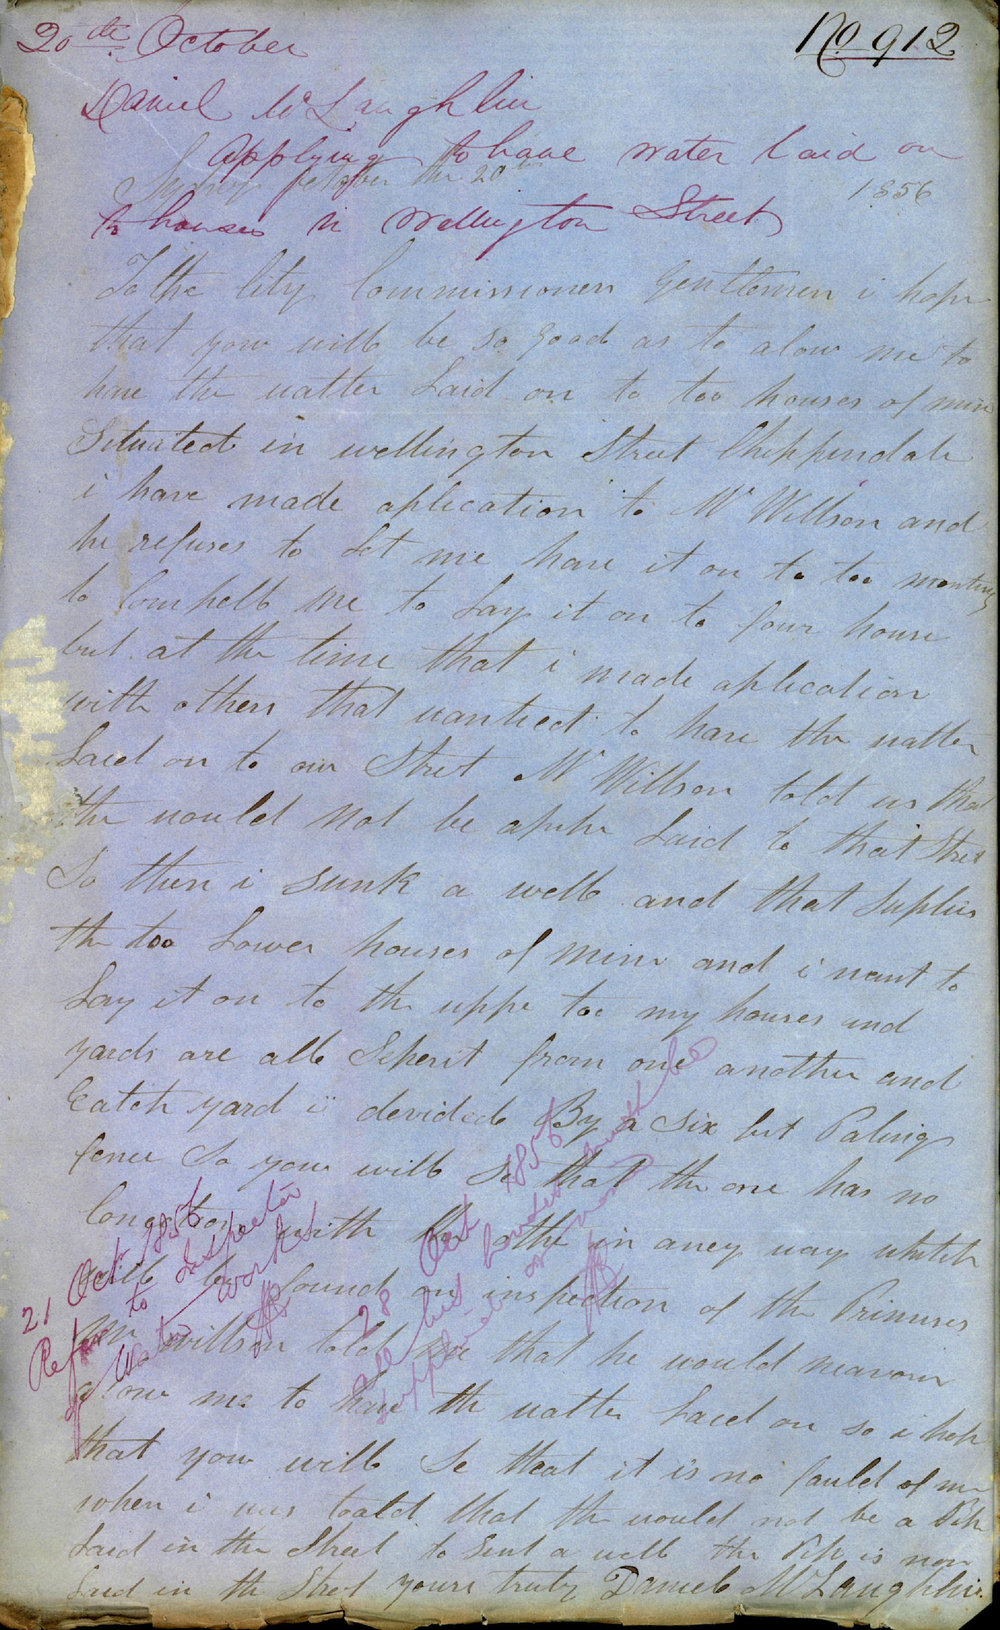 20th October
No 912
Daniel McLaughlin
Applying to have water laid on
Sydney October the 20th 1856
to houses in Wellington Street
To the City Commissioners Gentlemen i hope
that you will be so good as to alow me to
have the watter Laid on to too houses of mine
Situated in wellington Street Chippendale
i have made aplication to Mr Willson and
he refuses to Let me have it on to too wanting
to Compell me to Lay it on to four house
but at the time that i made aplication
with others that wanted to have the watter
Laid on to our Street Mr Willson told us that
the would not be a pipe Laid to that Street
So then i sunk a well and that Suplies
the too Lower houses of mine and i want to
Lay it on to the uppe too my houses and
yards are all Seperit from one another and
Eatch yard is devided By a six fut Paling
fence So you will Se that the one has no
with the othe in aney way whitch
will be found on inspection of the Primises
Willson told me that he would
alow me to have the watter Laid on so i hope
that you will Se that it is no fauld of me
when i was toald that the would not be a Pipe
Laid in the Street to Sent a well the Pipe is now
Laid in the Street yours truly Daniel McLaughlin
21 Oct 1856
Refer to Inspector
Water Works
28 Oct 1856
All his houses must be
supplied or none